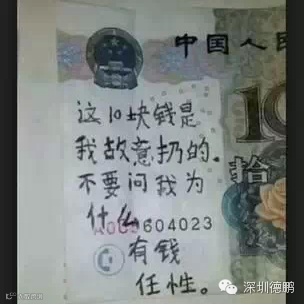 中国人民
10
拾
这10块钱是
我故意扔的.
不要问我为
什么.
09604023
有钱
任性。
深圳德鹏